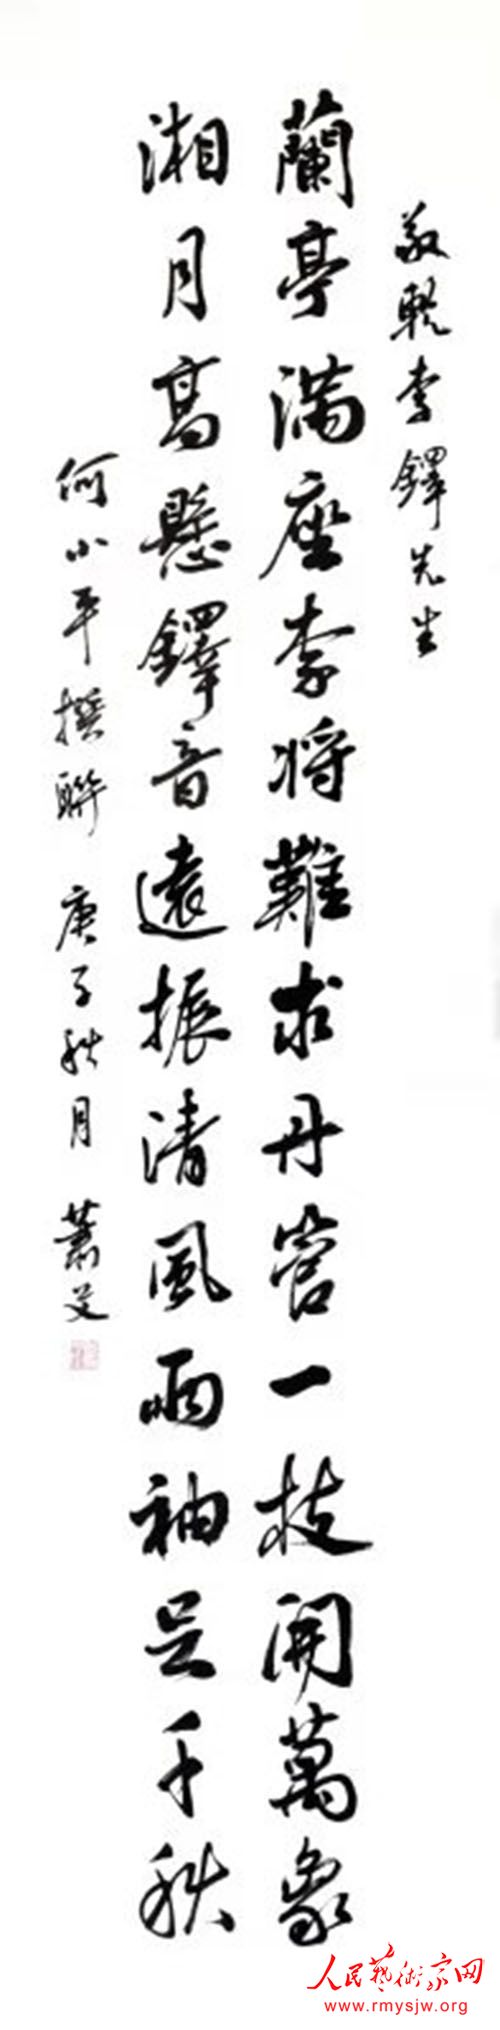 敬輓李鐸先生
蘭亭滿座李將難求丹管一枝開萬象
湘月高懸鐸音遠振清風兩袖足千秋
何小平撰聯 庚子秋月 蕭艾
人民藝術家网
www.rmysjw.org